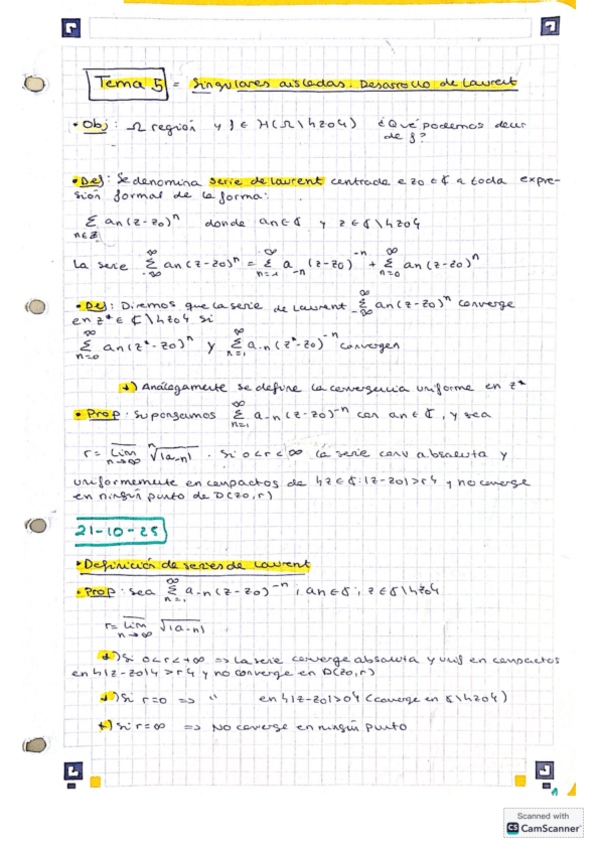 Tema 5 = Singulares aisladas. Desarrollo de Laurent
• Obj: Ω región y f ∈ H(Ω\{z0}) ¿Qué podemos decir
de f?
• Def: Se denomina serie de Laurent centrada e z0 ∈ ℂ a toda expre-
sión formal de la forma:
∑_{n∈ℤ} an(z-z0)^n donde an∈ℂ y z∈ℂ\{z0}
La serie ∑_{-∞}^{∞} an(z-z0)^n = ∑_{n=1}^{∞} a_{-n}(z-z0)^{-n} + ∑_{n=0}^{∞} an(z-z0)^n
• Def: Diremos que la serie de Laurent ∑_{-∞}^{∞} an(z-z0)^n converge
en z* ∈ ℂ\{z0} si
∑_{n=0}^{∞} an(z*-z0)^n y ∑_{n=1}^{∞} a-n(z*-z0)^{-n} convergen
*) Análogamente se define la convergencia uniforme en z*
• Prop: supongamos ∑_{n=1}^{∞} a-n(z-z0)^{-n} con an∈ℂ, y sea
r = \overline{lim}_{n→∞} ⁿ√|a-n| . Si 0<r<∞ la serie conv absoluta y
uniformemente en compactos de {z∈ℂ: |z-z0|>r} y no converge
en ningún punto de D(z0,r)
21-10-25
• Definición de series de Laurent
• Prop: sea ∑_{n=1}^{∞} a-n(z-z0)^{-n}, an∈ℂ, z∈ℂ\{z0}
r= \overline{lim}_{n→∞} √|a-n|
*) Si 0<r<+∞ => La serie converge absoluta y unif en compactos
en {|z-z0|>r} y no converge en D(z0,r)
*) Si r=0 => " en {|z-z0|>0} (converge en ℂ\{z0})
*) Si r=∞ => No converge en ningún punto
1
Scanned with
CS CamScanner